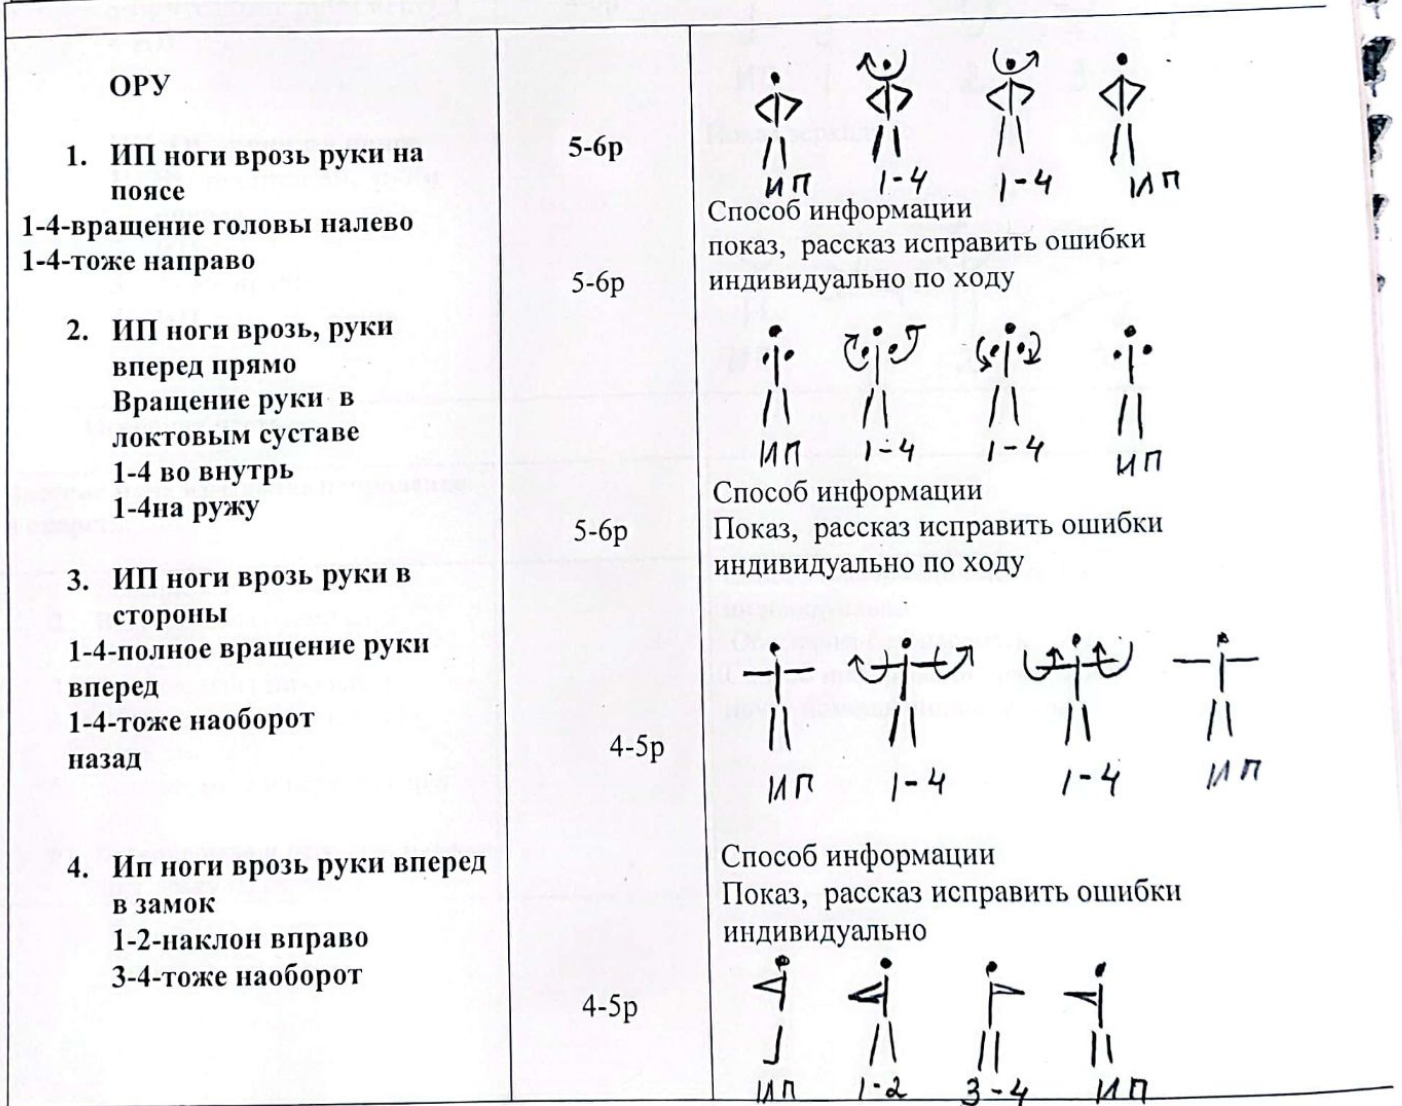 ОРУ
1. ИП ноги врозь руки на
поясе
1-4-вращение головы налево
1-4-тоже направо
2. ИП ноги врозь, руки
вперед прямо
Вращение руки в
локтовым суставе
1-4 во внутрь
1-4на ружу
3. ИП ноги врозь руки в
стороны
1-4-полное вращение руки
вперед
1-4-тоже наоборот
назад
4. Ип ноги врозь руки вперед
в замок
1-2-наклон вправо
3-4-тоже наоборот
5-6р
5-6р
5-6р
4-5р
4-5р
ИП 1-4 1-4 ИП
Способ информации
показ, рассказ исправить ошибки
индивидуально по ходу
ИП 1-4 1-4 ИП
Способ информации
Показ, рассказ исправить ошибки
индивидуально по ходу
ИП 1-4 1-4 ИП
Способ информации
Показ, рассказ исправить ошибки
индивидуально
ИП 1-2 3-4 ИП